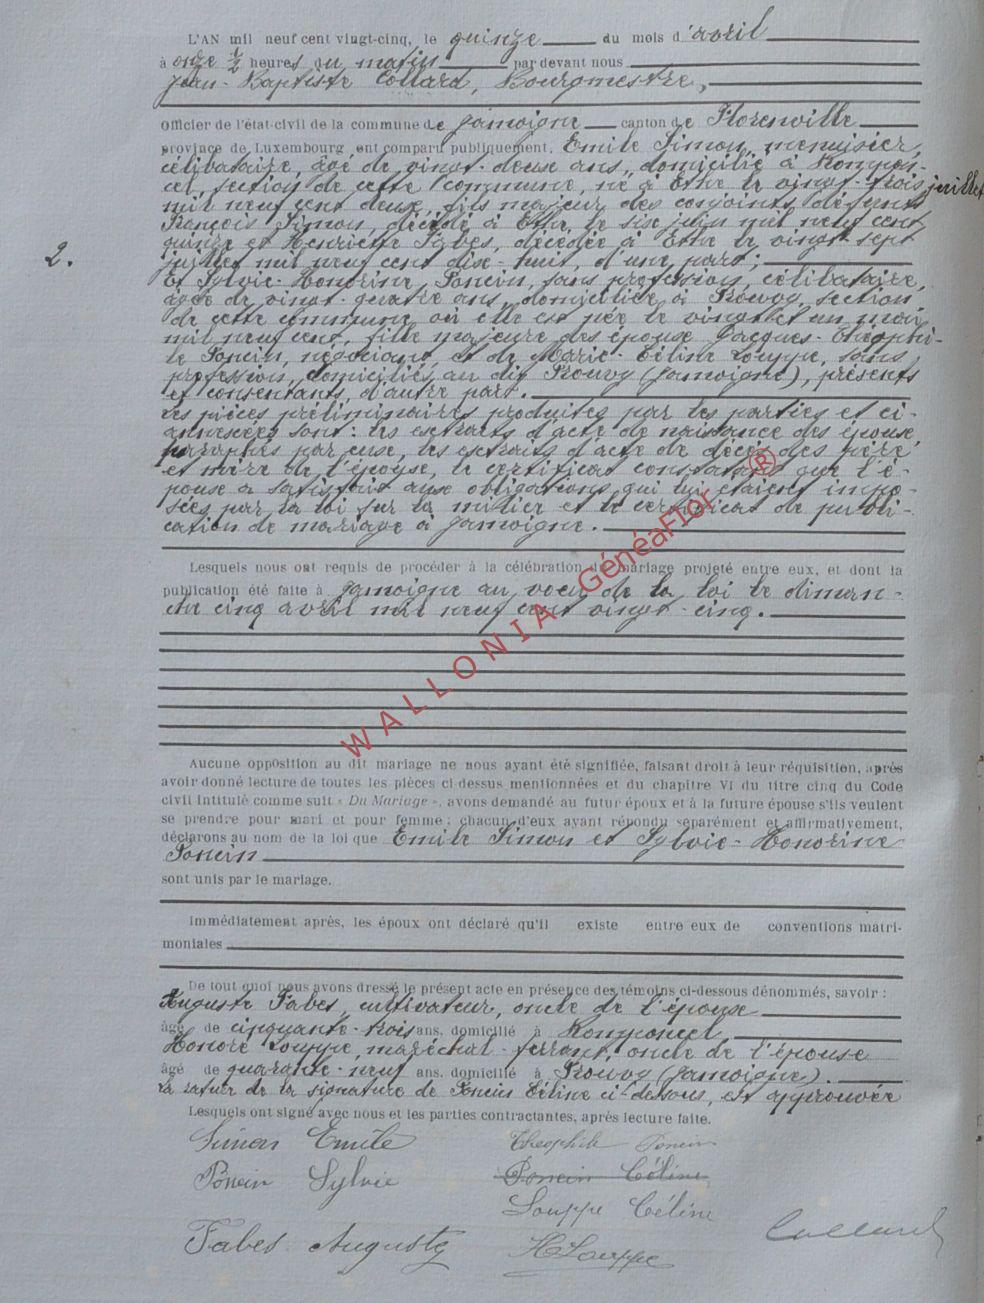 L'AN mil neuf cent vingt-cinq, le quinze du mois d'avril
à onze ½ heures du matin par devant nous
Jean-Baptiste Collard, Bourgmestre,
Officier de l'état-civil de la commune de Jamoigne canton de Florenville
province de Luxembourg, ont comparu publiquement, Emile Simon, menuisier,
célibataire, âgé de vingt-deux ans, domicilié à Romponcel, section de cette commune, né à Ethe le vingt-trois juillet
mil neuf cent deux, fils majeur des conjoints défunts
François Simon, décédé à Ethe, le six juin mil neuf cent
quinze et Henriette Fabes, décédée à Ethe le vingt-sept
2.
juillet mil neuf cent dix-huit, d'une part;
Et Sylvie-Honorine Poncin, sans profession, célibataire,
âgée de vingt-quatre ans, domiciliée à Prouvy, section
de cette commune où elle est née le vingt et un mai
mil neuf cent, fille majeure des époux Jacques-Théophi-
le Poncin, négociant, et de Marie-Céline Louppe, sans
profession, domiciliés au dit Prouvy (Jamoigne), présents
et consentants, d'autre part.
Les pièces préliminaires produites par les parties et ci-
annexées sont: les extraits d'acte de naissance des époux,
paraphés par eux, les extraits d'acte de décès des père
et mère de l'époux, le certificat constatant que l'é-
poux a satisfait aux obligations qui lui étaient impo-
sées par la loi sur la milice et le certificat de publi-
cation de mariage à Jamoigne.
Lesquels nous ont requis de procéder à la célébration du mariage projeté entre eux, et dont la
publication été faite à Jamoigne au voeu de la loi le diman-
che cinq avril mil neuf cent vingt-cinq.
WALLONIA GénéaFlor ®
Aucune opposition au dit mariage ne nous ayant été signifiée, faisant droit à leur réquisition, après
avoir donné lecture de toutes les pièces ci-dessus mentionnées et du chapitre VI du titre cinq du Code
civil intitulé comme suit « Du Mariage », avons demandé au futur époux et à la future épouse s'ils veulent
se prendre pour mari et pour femme; chacun d'eux ayant répondu séparément et affirmativement,
déclarons au nom de la loi que Emile Simon et Sylvie-Honorine
Poncin
sont unis par le mariage.
Immédiatement après, les époux ont déclaré qu'il existe entre eux de conventions matri-
moniales
De tout quoi nous avons dressé le présent acte en présence des témoins ci-dessous dénommés, savoir :
Auguste Fabes, cultivateur, oncle de l'époux
âgé de cinquante-trois ans, domicilié à Romponcel
Honoré Louppe, maréchal-ferrant, oncle de l'épouse
âgé de quarante-neuf ans, domicilié à Prouvy (Jamoigne).
La rature de la signature de Poncin Céline ci-dessous, est approuvée
Lesquels ont signé avec nous et les parties contractantes, après lecture faite.
Simon Emile Théophile Poncin
Poncin Sylvie Poncin Céline
Louppe Céline
Fabes Auguste H Louppe Collard